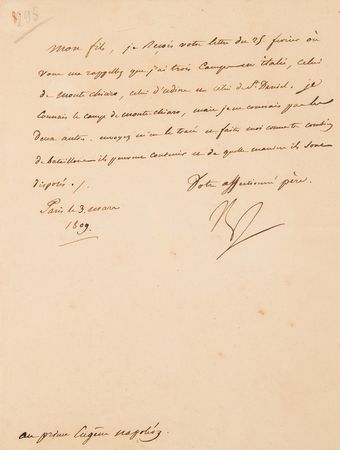 298
Mon fils, je reçois votre lettre du 25. fevrier où
vous me rappellez que j'ai trois Camps en italie, celui
de monte chiaro, celui d'udine et celui de St. Daniel. je
connais le camp de monte chiaro, mais je ne connais pas les
deux autres. envoyez m'en le tracé et faites moi connaitre combien
de bataillons ils peuvent contenir et de quelle maniere ils sont
disposés ./.
Votre affectionné père.
Paris le 3. mars
1809.
au prince Eugène napoléon